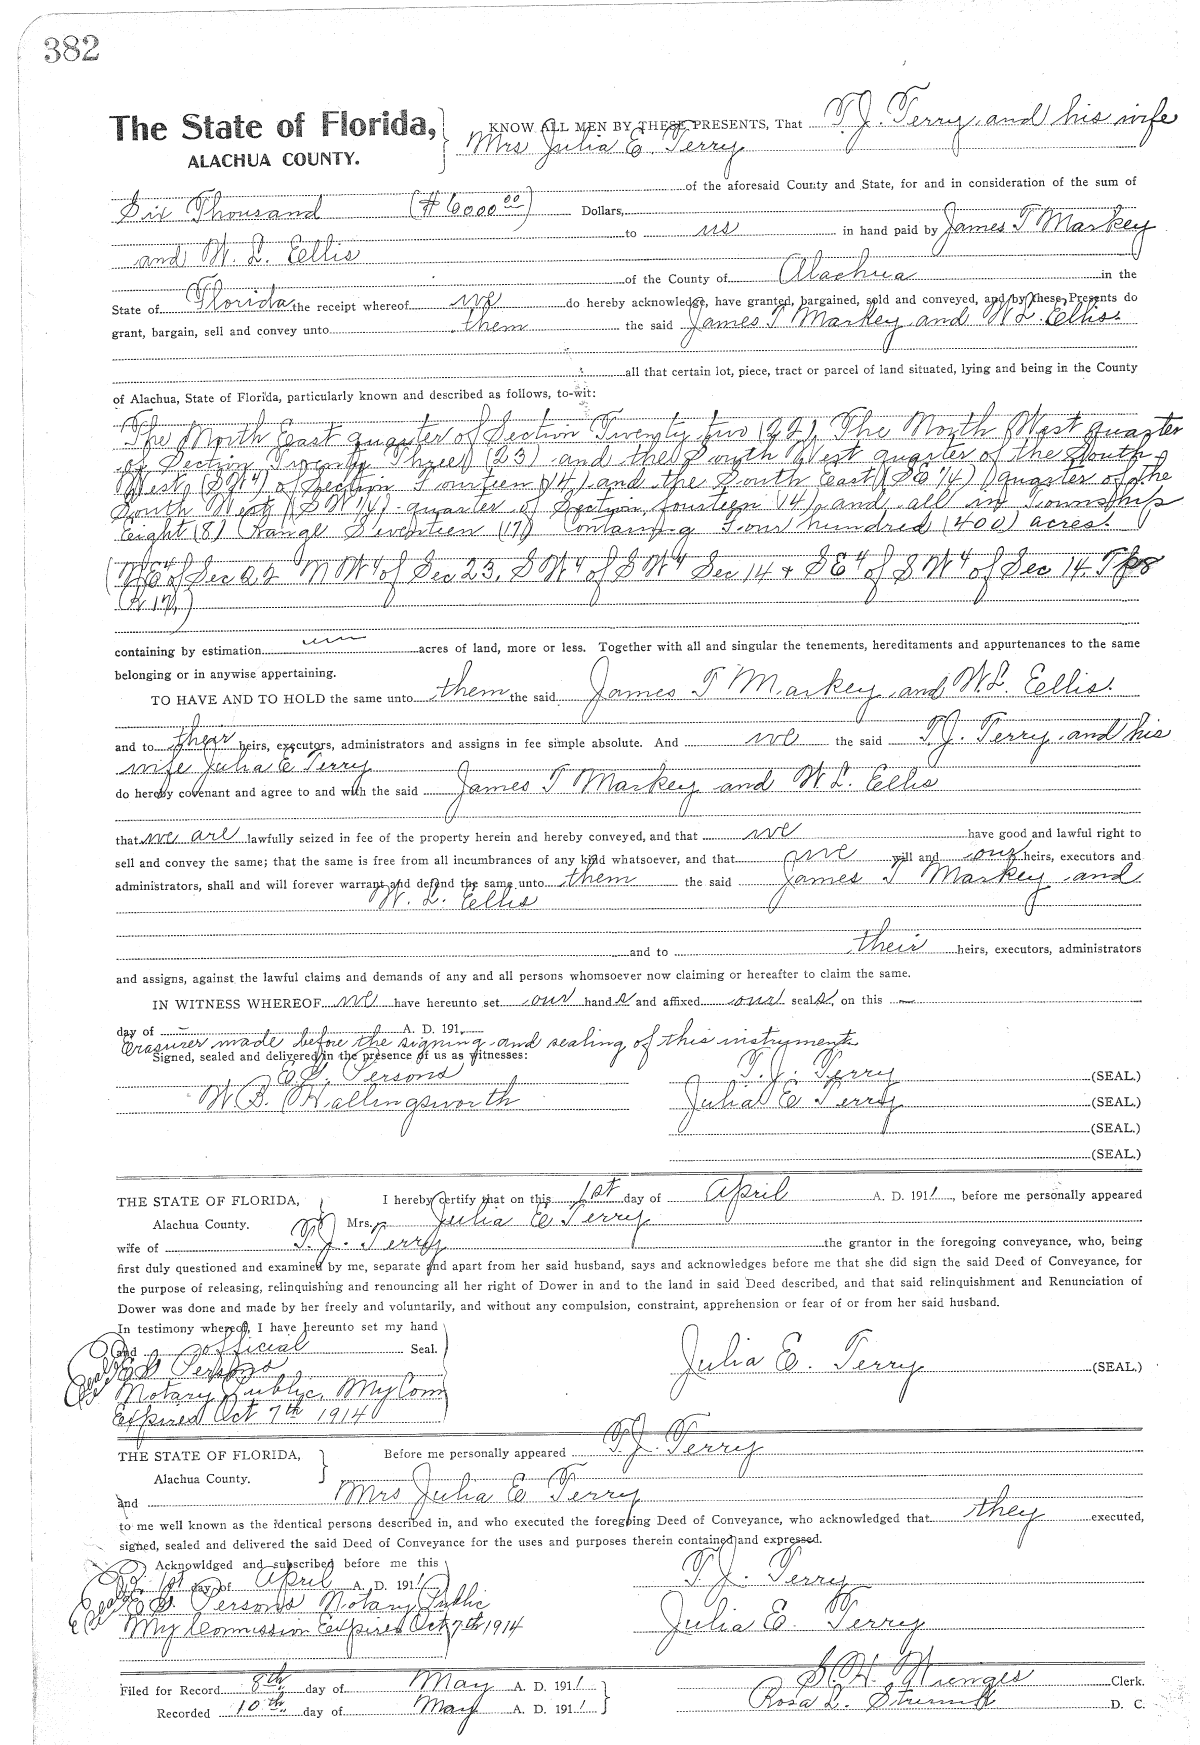 382
The State of Florida, KNOW ALL MEN BY THESE PRESENTS, That T. J. Terry and his wife
ALACHUA COUNTY. Mrs Julia E. Terry
of the aforesaid County and State, for and in consideration of the sum of
Six Thousand ($6000.00) Dollars,
to us in hand paid by James T Markey
and W. L. Ellis
of the County of Alachua in the
State of Florida the receipt whereof we do hereby acknowledge, have granted, bargained, sold and conveyed, and by these Presents do
grant, bargain, sell and convey unto them the said James T Markey and W L. Ellis.
all that certain lot, piece, tract or parcel of land situated, lying and being in the County
of Alachua, State of Florida, particularly known and described as follows, to-wit:
The North East quarter of Section Twenty two (22), The North West quarter
of Section Twenty Three (23) and the South West quarter of the South
West (SW¼) of Section Fourteen (14) and the South East (SE ¼) quarter of the
South West (SW ¼) quarter of Section fourteen (14) and all in Township
Eight (8) Range Seventeen (17) Containing Four hundred (400) acres.
(NE4 of Sec 22 NW4 of Sec 23. SW4 of SW4 Sec 14 & SE4 of SW4 of Sec 14. Tp8
R 17.)
containing by estimation acres of land, more or less. Together with all and singular the tenements, hereditaments and appurtenances to the same
belonging or in anywise appertaining.
TO HAVE AND TO HOLD the same unto them the said James T Markey and W. L. Ellis.
and to their heirs, executors, administrators and assigns in fee simple absolute. And we the said T. J. Terry and his
wife Julia E Terry
do hereby covenant and agree to and with the said James T Markey and W L. Ellis
that we are lawfully seized in fee of the property herein and hereby conveyed, and that we have good and lawful right to
sell and convey the same; that the same is free from all incumbrances of any kind whatsoever, and that we will and our heirs, executors and
administrators, shall and will forever warrant and defend the same unto them the said James T Markey and
W. L. Ellis
and to their heirs, executors, administrators
and assigns, against the lawful claims and demands of any and all persons whomsoever now claiming or hereafter to claim the same.
IN WITNESS WHEREOF we have hereunto set our hands and affixed our seals, on this —
day of — A. D. 191
Erasurer made before the signing and sealing of this instrument
Signed, sealed and delivered in the presence of us as witnesses:
E. G. Persons T. J. Terry (SEAL.)
W. B. Hallingsworth Julia E Terry (SEAL.)
(SEAL.)
(SEAL.)
THE STATE OF FLORIDA, I hereby certify that on this 1st day of April A. D. 1911, before me personally appeared
Alachua County. Mrs. Julia E Terry
wife of T. J. Terry the grantor in the foregoing conveyance, who, being
first duly questioned and examined by me, separate and apart from her said husband, says and acknowledges before me that she did sign the said Deed of Conveyance, for
the purpose of releasing, relinquishing and renouncing all her right of Dower in and to the land in said Deed described, and that said relinquishment and Renunciation of
Dower was done and made by her freely and voluntarily, and without any compulsion, constraint, apprehension or fear of or from her said husband.
In testimony whereof, I have hereunto set my hand
and official Seal.
E G Persons Julia E. Terry (SEAL.)
Notary Public, My Com
Expires Oct 7th 1914
THE STATE OF FLORIDA, Before me personally appeared T. J. Terry
Alachua County.
and Mrs Julia E Terry
to me well known as the identical persons described in, and who executed the foregoing Deed of Conveyance, who acknowledged that they executed,
signed, sealed and delivered the said Deed of Conveyance for the uses and purposes therein contained and expressed.
Acknowldged and subscribed before me this T. J. Terry
1st day of April A. D. 1911
E G Persons Notary Public Julia E. Terry
My Commission Expires Oct 7th 1914
Filed for Record 8th day of May A. D. 1911 S. H. Wienges Clerk.
Recorded 10th day of May A. D. 1911 Rosa L. D. C.